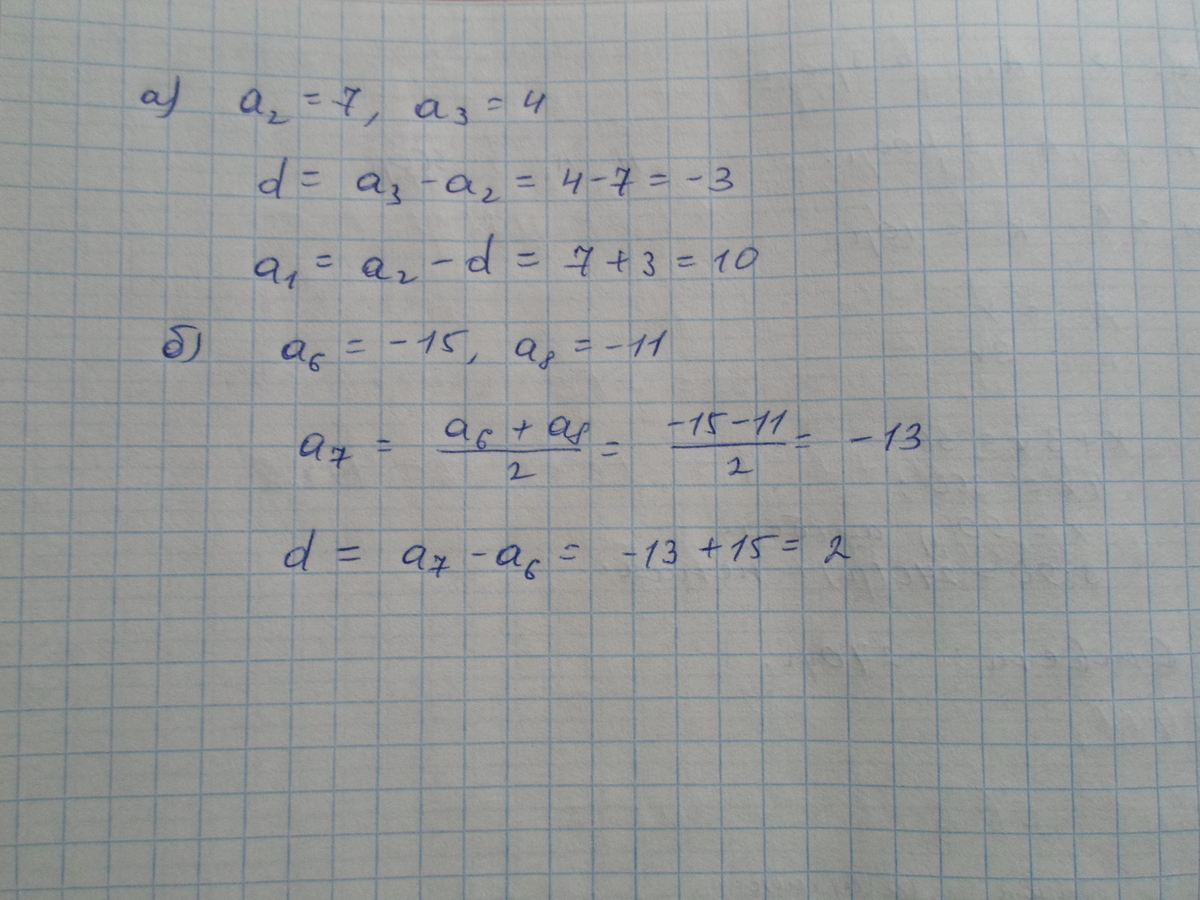 а) a₂ = 7, a₃ = 4
d = a₃ - a₂ = 4 - 7 = -3
a₁ = a₂ - d = 7 + 3 = 10
б) a₆ = -15, a₈ = -11
a₇ = (a₆ + a₈)/2 = (-15 - 11)/2 = -13
d = a₇ - a₆ = -13 + 15 = 2